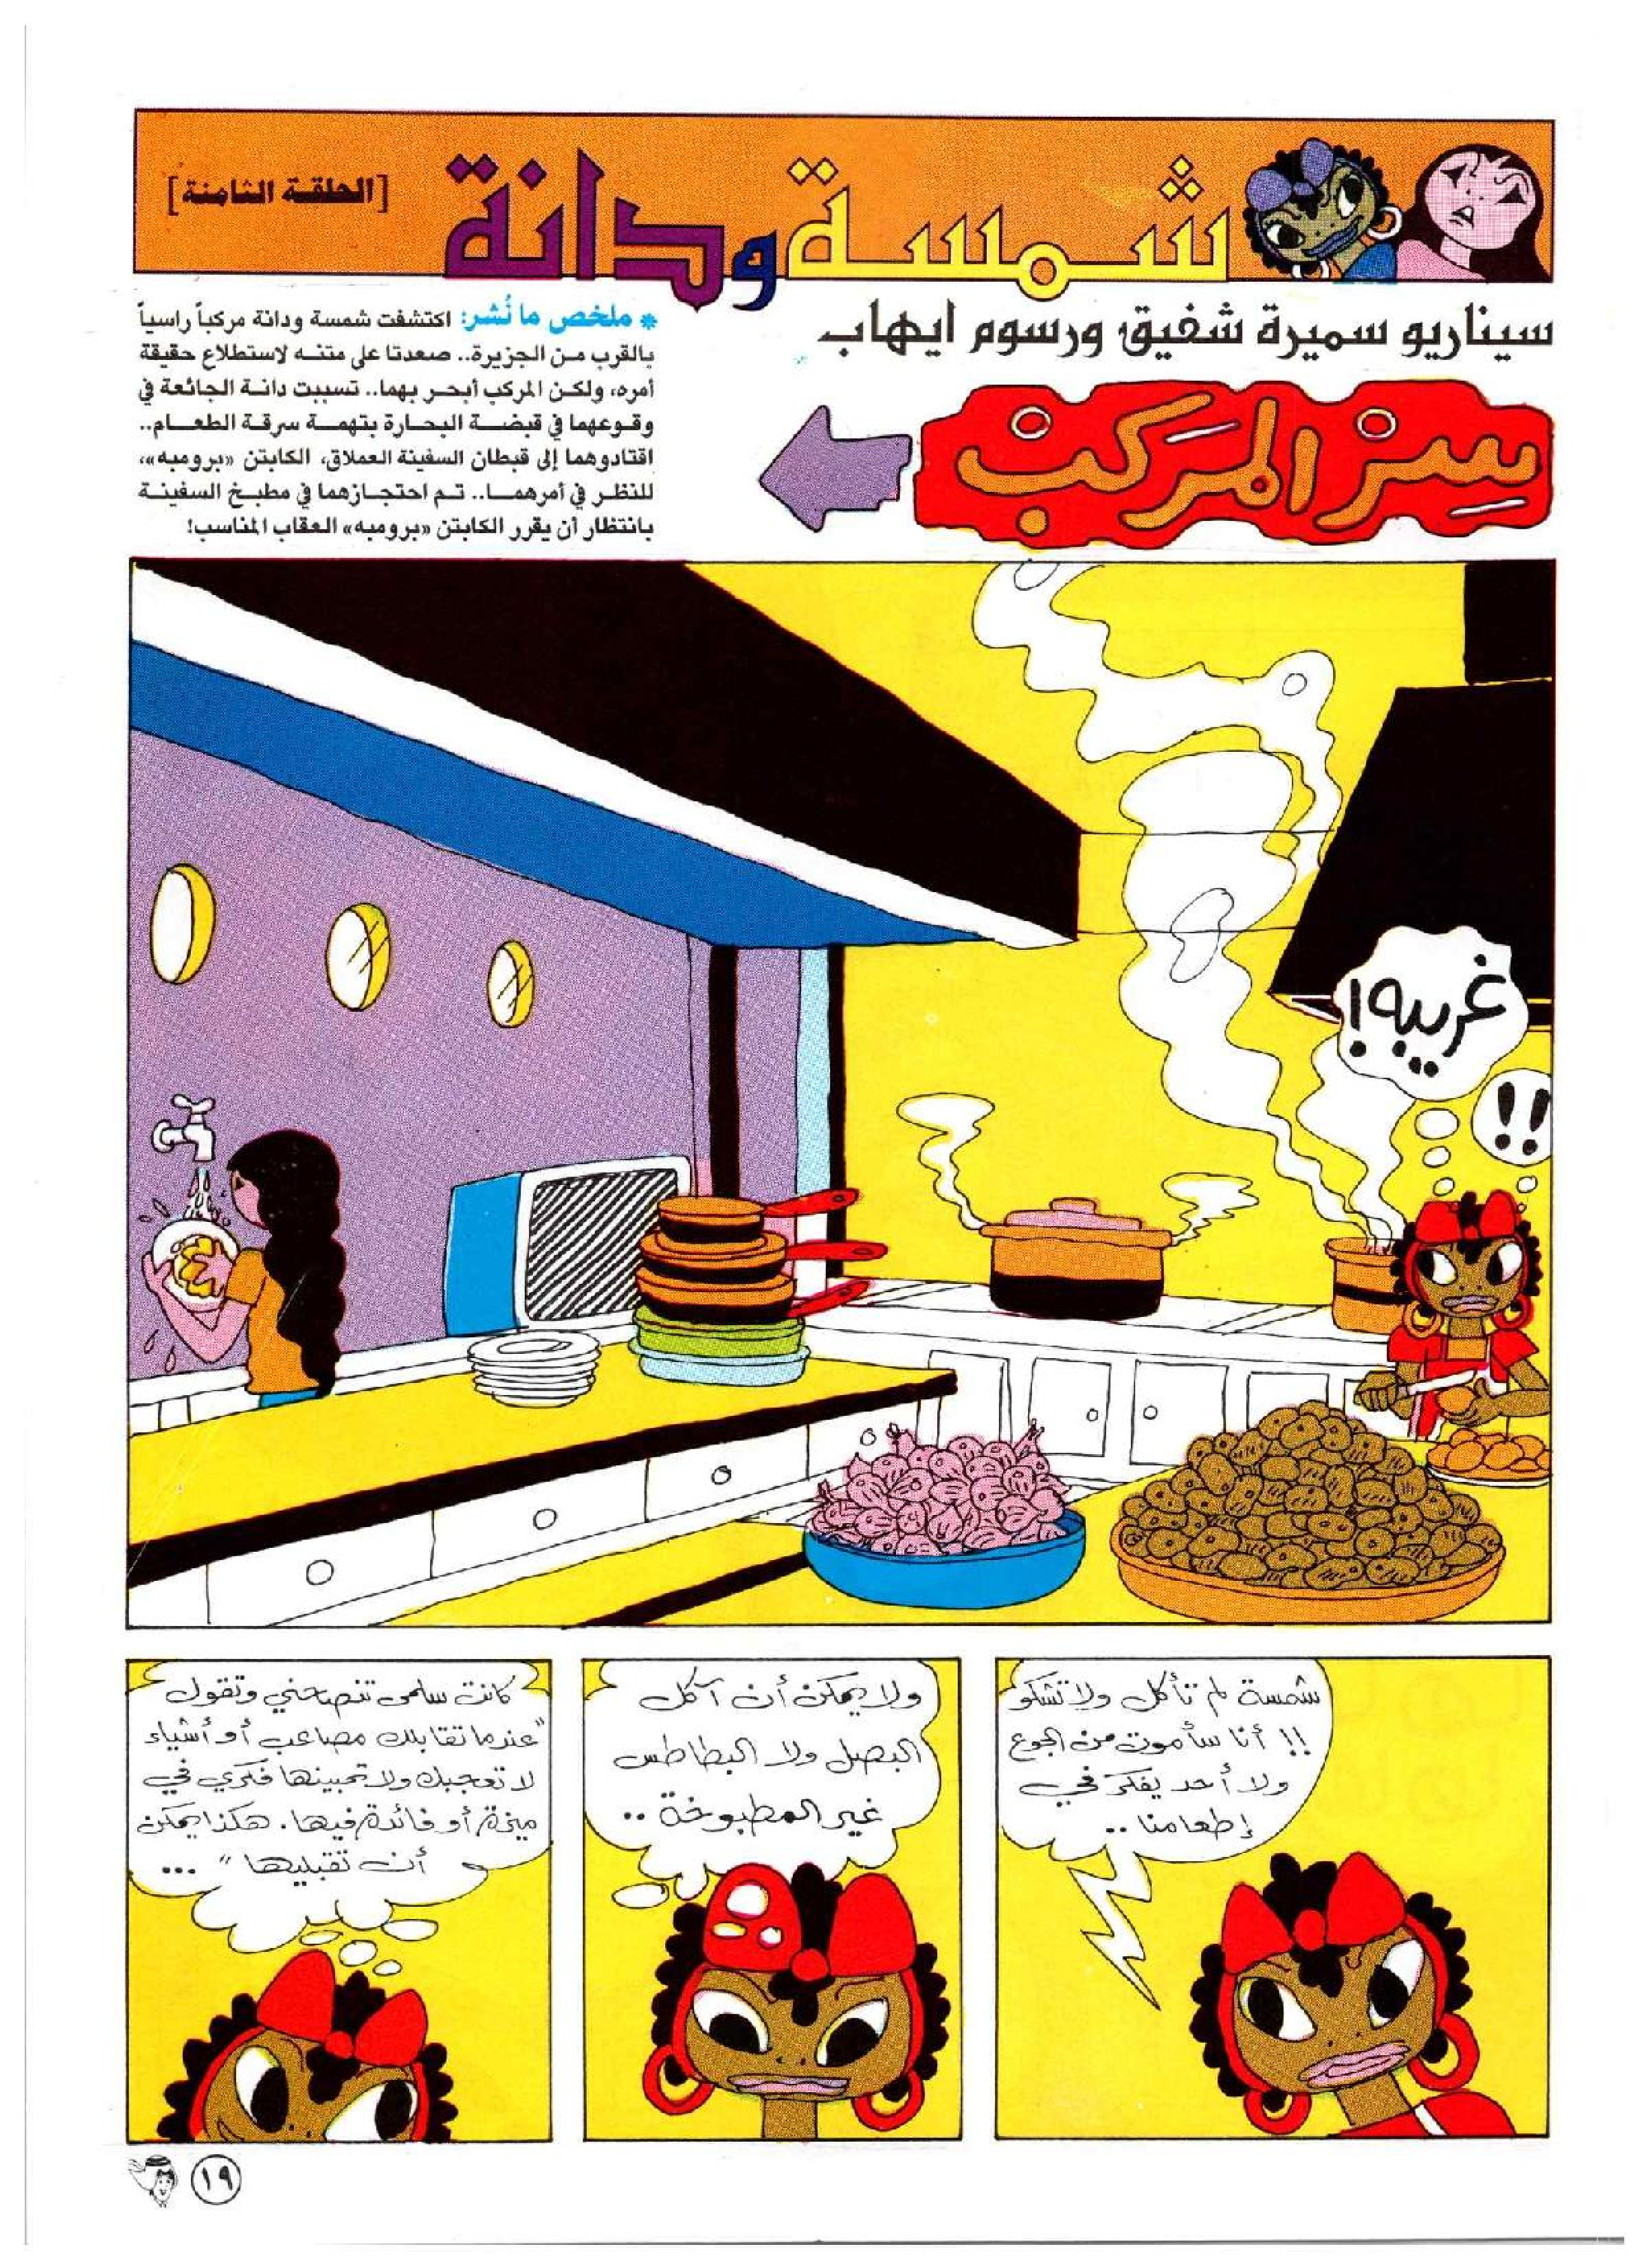 شمسة ودانة
[الحلقة الثامنة]
سيناريو سميرة شفيق ورسوم ايهاب
سِر المَركَب
* ملخص ما نُشر: اكتشفت شمسة ودانة مركباً راسياً
بالقرب من الجزيرة.. صعدتا على متنه لاستطلاع حقيقة
أمره، ولكن المركب أبحر بهما.. تسببت دانة الجائعة في
وقوعهما في قبضة البحارة بتهمة سرقة الطعام..
اقتادوهما إلى قبطان السفينة العملاق، الكابتن «برومبه»،
للنظر في أمرهما.. تم احتجازهما في مطبخ السفينة
بانتظار أن يقرر الكابتن «برومبه» العقاب المناسب!
غريبه!
!!
شمسة لم تأكل ولا تشكو
!! أنا سأموت من الجوع
ولا أحد يفكر في
إطعامنا ..
ولا يمكن أن آكل
البصل ولا البطاطس
غير المطبوخة ..
كانت سلمى تنصحني وتقول
"عندما تقابلك مصاعب أو أشياء
لا تعجبك ولا تحبينها فكري في
ميزة أو فائدة فيها. هكذا يمكن
أن تقبليها" ...
١٩